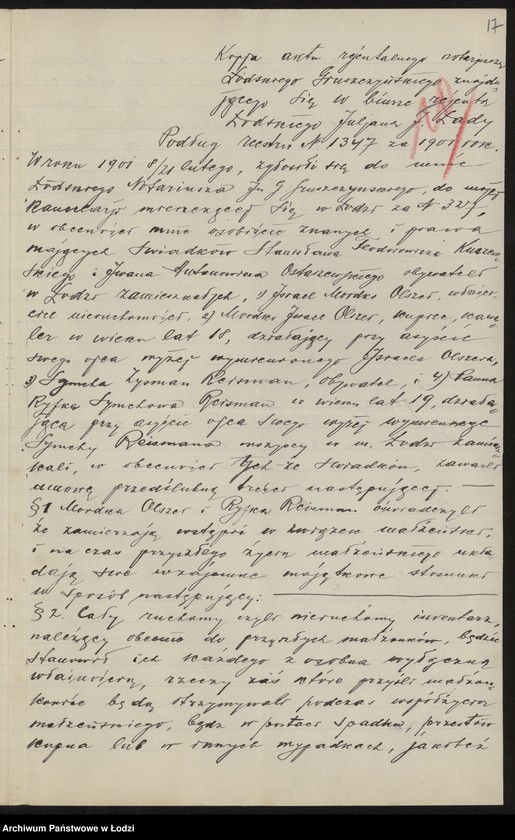 17
Kopja aktu rejentalnego notarjusza
Łódzkiego Gruszczyńskiego znajdu-
jącego się w biurze rejenta
Łódzkiego Juljana J. Łady
Podług Rep. N 1347 za 1901 rok.
W roku 1901 8/21 lutego, zgłosili się do mnie
Łódzkiego Notariusza G Gruszczyńskiego, do mojej
kancelarji mieszczącej się w Łodzi za N 327,
w obecności mnie osobiście znanych i prawa
mających świadków Stanisława Teodorowicza
i Iwana Antonowicza Ostaszewskiego obywateli
w Łodzi zamieszkałych, 1) Israel Mordko Olszer, właści-
ciel nieruchomości, 2) Mordko Israel Olszer, kupiec, kawa-
ler w wieku lat 18, działający przy asyście
swego ojca wyżej wymienionego Israela Olszera,
3) Symcha Zysman Reisman, obywatel, i 4) Panna
Ryfka Symchowa Reisman w wieku lat 19, działa-
jąca przy asyście ojca swego wyżej wymienionego
Symchy Reismana wszyscy w m. Łodzi zamiesz-
kali, w obecności tychże świadków, zawarli
umowę przedślubną treści następującej:
§1 Mordka Olszer i Ryfka Reisman oświadczyli
że zamierzają wstąpić w związek małżeński,
i na czas przyszłego życia małżeńskiego ukła-
dają swe wzajemne majątkowe stosunki
w sposób następujący:
§2. Cały ruchomy czyli nieruchomy inwentarz,
należący obecnie do przyszłych małżonków, będzie
stanowił ich każdego z osobna wyłączną
własnością, rzeczy zaś które przyszli małżon-
kowie będą otrzymywali podczas współżycia
małżeńskiego, bądź w postaci spadku,
kupna lub w innych wypadkach, jakoteż
Archiwum Państwowe w Łodzi